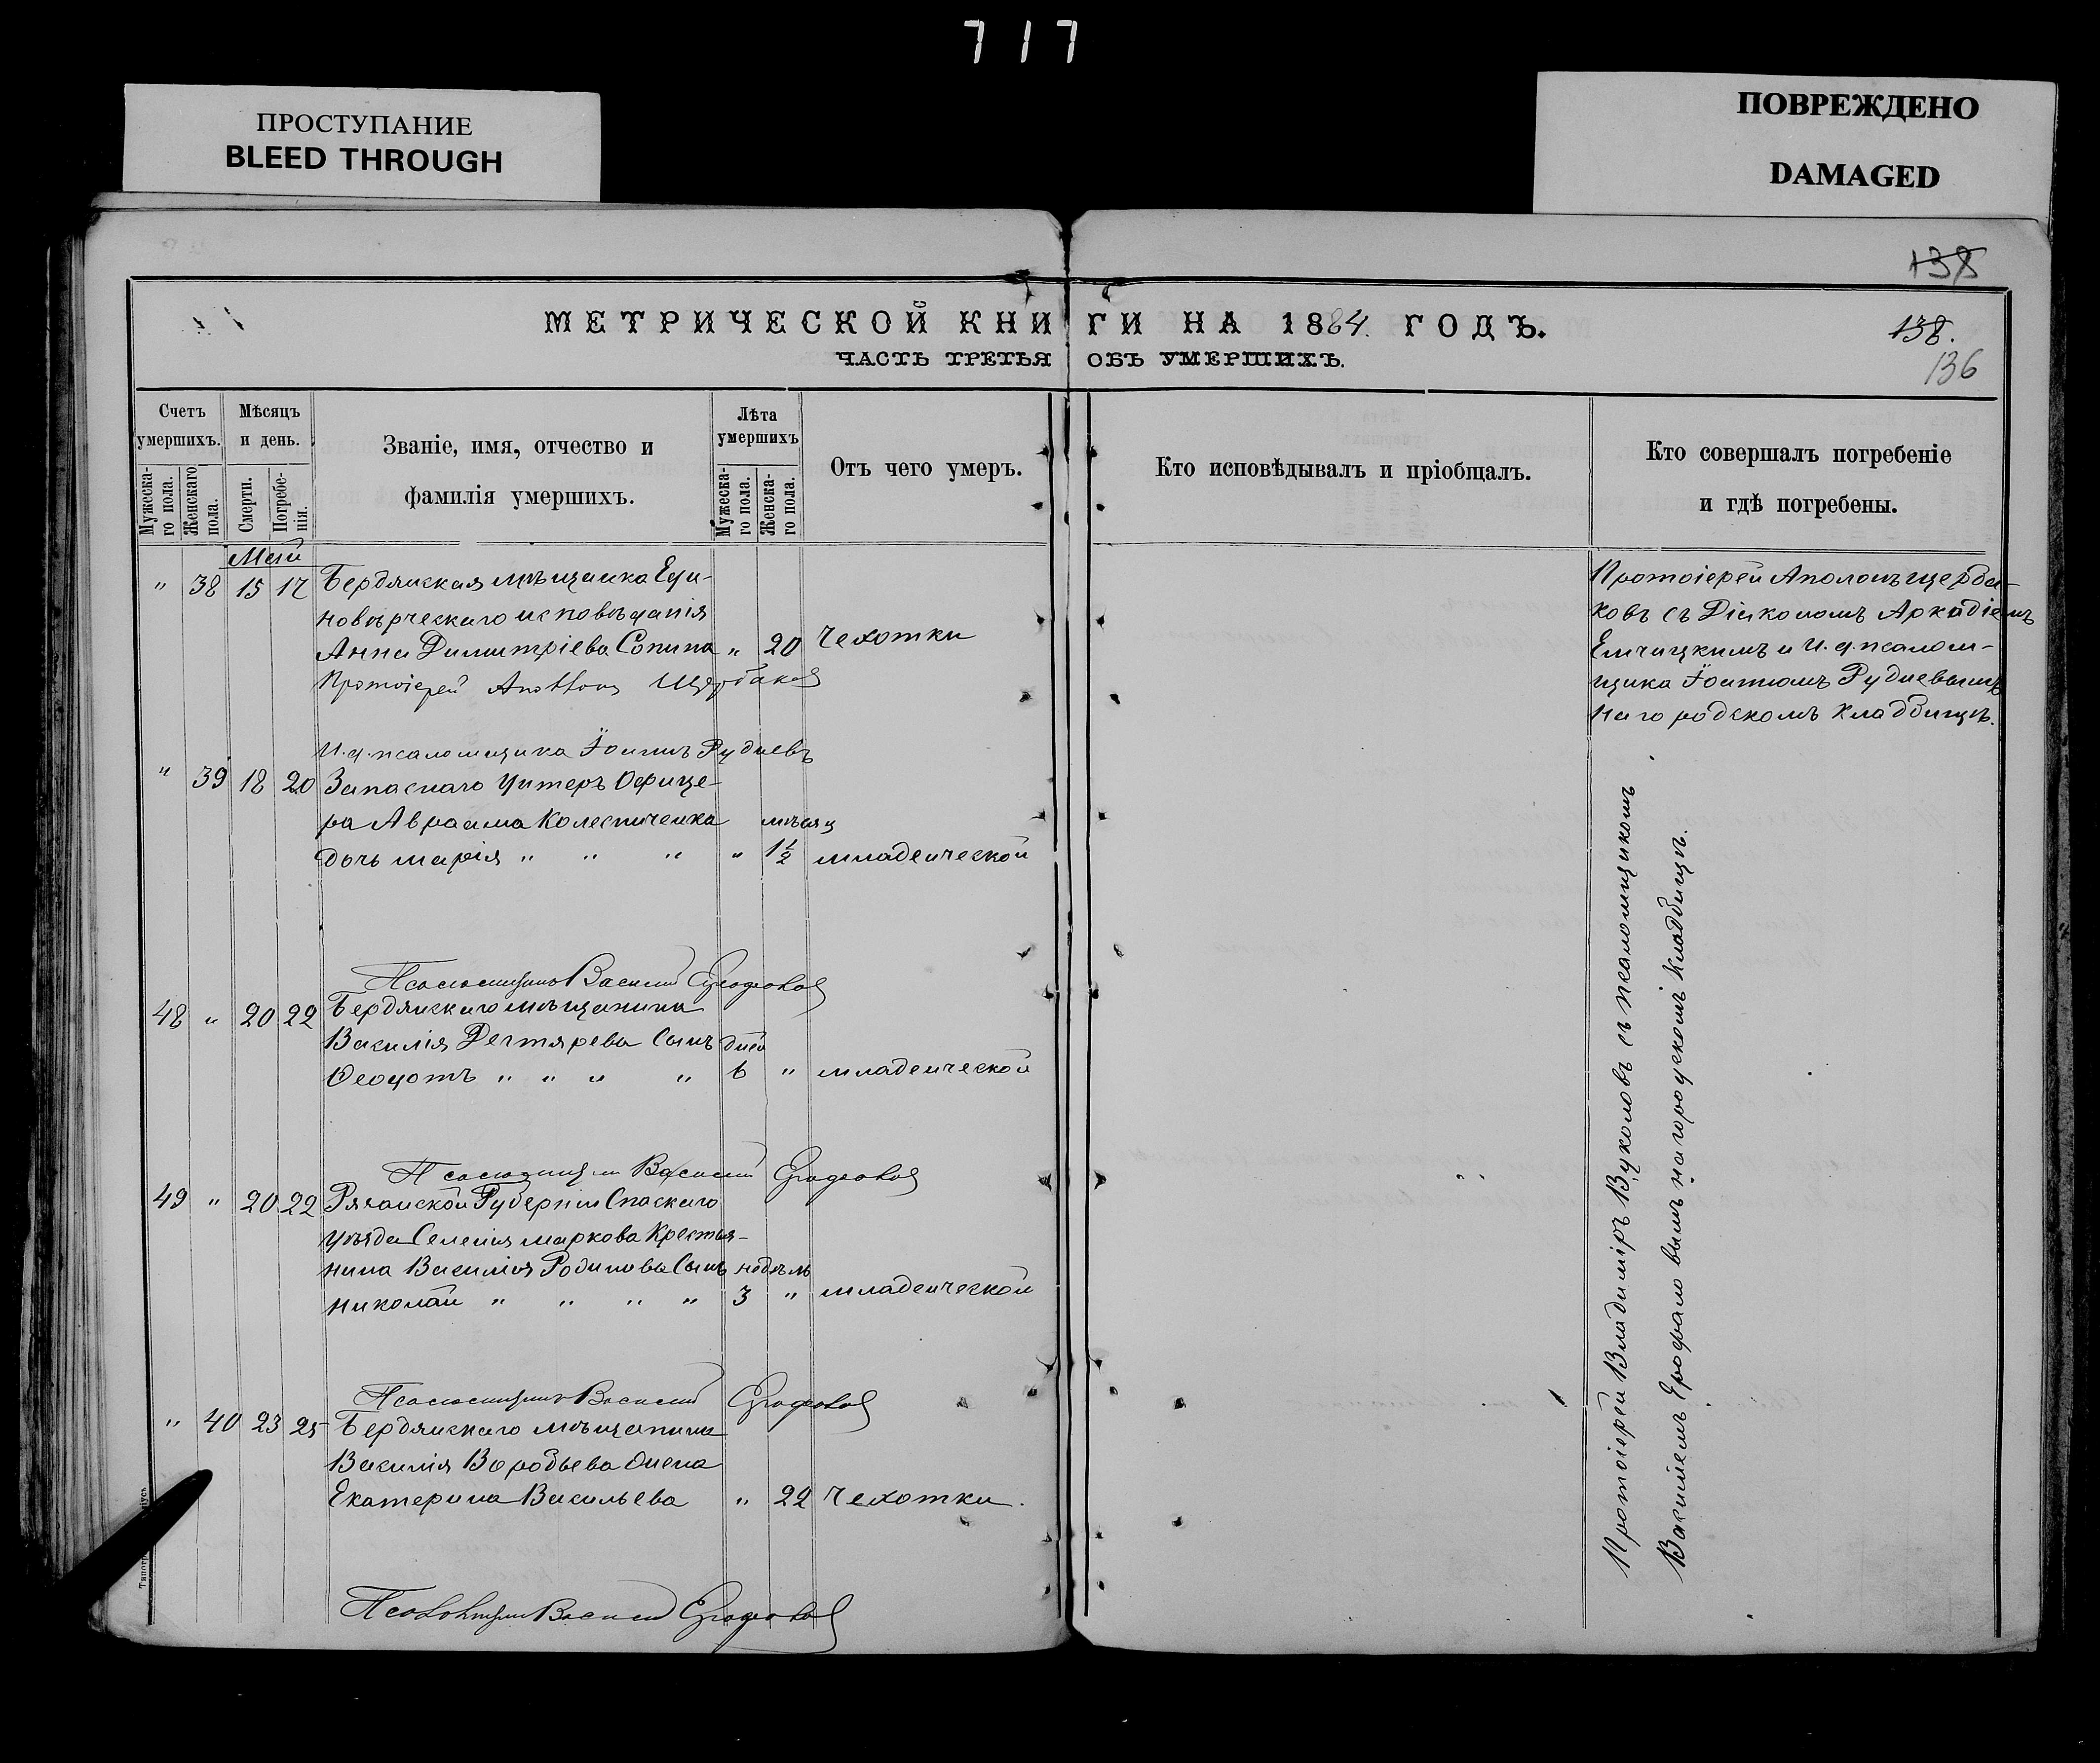 717
ПРОСТУПАНИЕ
BLEED THROUGH
ПОВРЕЖДЕНО
DAMAGED
138
МЕТРИЧЕСКОЙ КНИГИ НА 1884. ГОДЪ.
138.
ЧАСТЬ ТРЕТЬЯ ОБЪ УМЕРШИХЪ.
136
Счетъ умершихъ.
Мужеска-го пола.
Женскаго пола.
Мѣсяцъ и день.
Смерти.
Погребе-нія.
Званіе, имя, отчество и
фамилія умершихъ.
Лѣта умершихъ
Мужеска-го пола.
Женска-го пола.
Отъ чего умеръ.
Кто исповѣдывалъ и пріобщалъ.
Кто совершалъ погребеніе
и гдѣ погребены.
Май
" 38 15 17 Бердянская мѣщанка Еди-
новѣрческаго исповѣданія
Анна Димитріева Сопина " 20 Чахотки
Протоіерей Аполлонъ Щербаковъ
И.д. псаломщика Іоаннъ Рудневъ
Протоіерей Аполонъ Щерба-
ковъ съ Діакономъ Аркадіемъ
Емчицкимъ и И.д. псалом-
щика Іоанномъ Рудневымъ
На городскомъ кладбищѣ.
" 39 18 20 Запаснаго Унтеръ Офице-
ра Авраама Колесниченка мѣсяц
дочь Марія " " " " 1½ младенческой
Псаломщикъ Василій
48 " 20 22 Бердянскаго мѣщанина
Василія Дегтярева Сынъ дней
Ѳеодотъ " " " " 6 " младенческой
Псаломщикъ Василій
49 " 20 22 Рязанской Губерніи Спаскаго
уѣзда Селенія Маркова Крестья-
нина Василія Родинова Сынъ недѣль
Николай " " " " 3 " младенческой
Псаломщикъ Василій
" 40 23 25 Бердянскаго мѣщанина
Василія Воробьева жена
Екатерина Васильева " 22 Чахотки.
Псаломщикъ Василій
Протоіерей Владиміръ Вуколовъ съ псаломщикомъ
Василіемъ на городскомъ кладбищѣ.